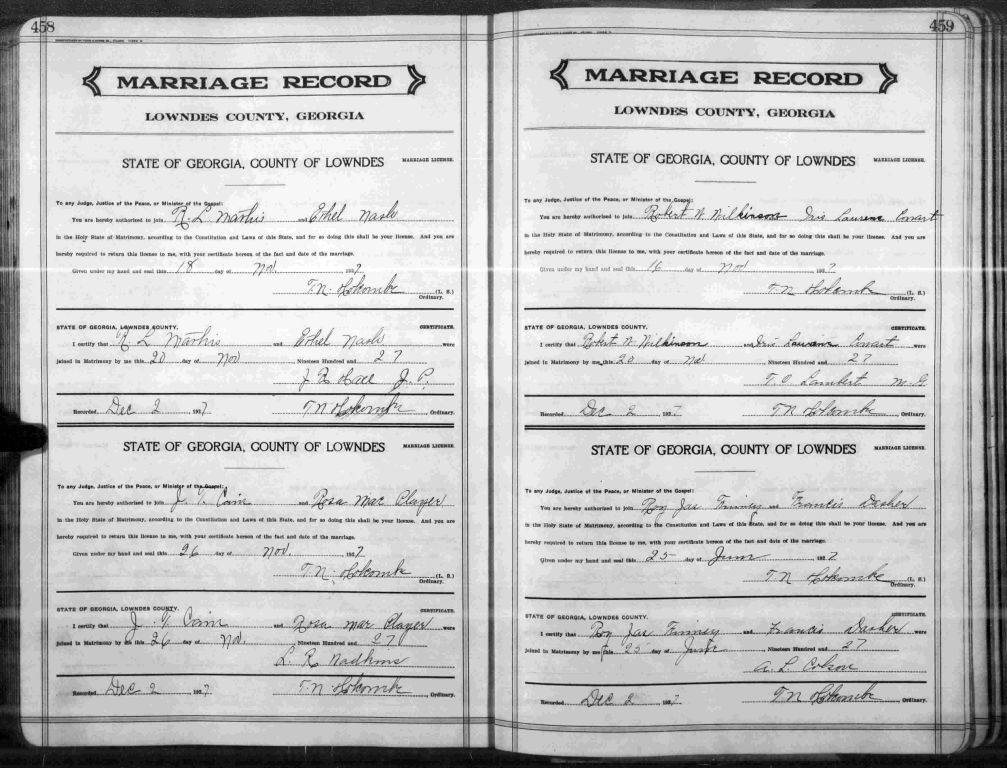 458
MARRIAGE RECORD
LOWNDES COUNTY, GEORGIA
STATE OF GEORGIA, COUNTY OF LOWNDES MARRIAGE LICENSE.
To any Judge, Justice of the Peace, or Minister of the Gospel:
You are hereby authorized to join R. L. Mathis and Ethel Nash
in the Holy State of Matrimony, according to the Constitution and Laws of this State, and for so doing this shall be your license. And you are
hereby required to return this license to me, with your certificate hereon of the fact and date of the marriage.
Given under my hand and seal this 18 day of Nov 1927
T. N. Holcombe (L. S.)
Ordinary.
STATE OF GEORGIA, LOWNDES COUNTY. CERTIFICATE.
I certify that R L Mathis and Ethel Nash were
joined in Matrimony by me this 20 day of Nov Nineteen Hundred and 27
J R Hall J. P.
Recorded Dec 2 1927 T. N Holcombe Ordinary.
STATE OF GEORGIA, COUNTY OF LOWNDES MARRIAGE LICENSE.
To any Judge, Justice of the Peace, or Minister of the Gospel:
You are hereby authorized to join J. T. Cain and Rosa Mae Player
in the Holy State of Matrimony, according to the Constitution and Laws of this State, and for so doing this shall be your license. And you are
hereby required to return this license to me, with your certificate hereon of the fact and date of the marriage.
Given under my hand and seal this 26 day of Nov. 1927
T. N. Holcombe (L. S.)
Ordinary.
STATE OF GEORGIA, LOWNDES COUNTY. CERTIFICATE.
I certify that J. T Cain and Rosa Mae Player were
joined in Matrimony by me this 26 day of Nov. Nineteen Hundred and 27
L. R.
Recorded Dec 2 1927 T. N. Holcombe Ordinary.
459
MARRIAGE RECORD
LOWNDES COUNTY, GEORGIA
STATE OF GEORGIA, COUNTY OF LOWNDES MARRIAGE LICENSE.
To any Judge, Justice of the Peace, or Minister of the Gospel:
You are hereby authorized to join Robert N. Wilkinson Iris Laurene Cowart
in the Holy State of Matrimony, according to the Constitution and Laws of this State, and for so doing this shall be your license. And you are
hereby required to return this license to me, with your certificate hereon of the fact and date of the marriage.
Given under my hand and seal this 16 day of Nov 1927
T. N Holcombe (L. S.)
Ordinary.
STATE OF GEORGIA, LOWNDES COUNTY. CERTIFICATE.
I certify that Robert N. Wilkinson and Iris Laurene Cowart were
joined in Matrimony by me this 20 day of Nov Nineteen Hundred and 27
T. O. Lambert M. G.
Recorded Dec 2 1927 T. N Holcombe Ordinary.
STATE OF GEORGIA, COUNTY OF LOWNDES MARRIAGE LICENSE.
To any Judge, Justice of the Peace, or Minister of the Gospel:
You are hereby authorized to join Roy Jas Finney and Francis Dasher
in the Holy State of Matrimony, according to the Constitution and Laws of this State, and for so doing this shall be your license. And you are
hereby required to return this license to me, with your certificate hereon of the fact and date of the marriage.
Given under my hand and seal this 25 day of June 1927
T. N Holcombe (L. S.)
Ordinary.
STATE OF GEORGIA, LOWNDES COUNTY. CERTIFICATE.
I certify that Roy Jas Finney and Francis Dasher were
joined in Matrimony by me this 25 day of June Nineteen Hundred and 27
A. L. Colson
Recorded Dec 2 1927 T. N Holcombe Ordinary.